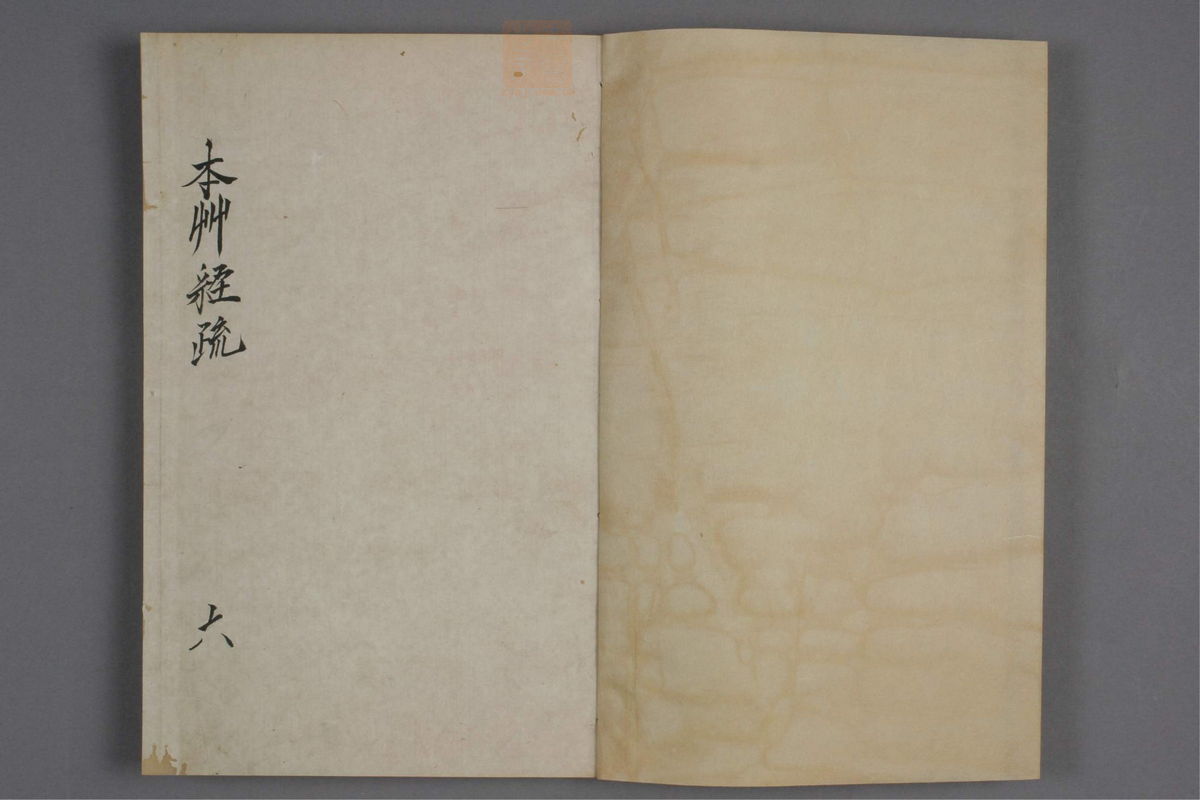 本艸経疏
六